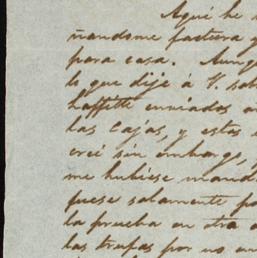 Aquí he
ñandome factura y
para casa. Aunq
lo que dije á V. sob
haffitte enviados a
las cajas, y estas
creí sin embargo,
me hubiese mand
fuese solamente po
la prueba en otra
las trufas por no